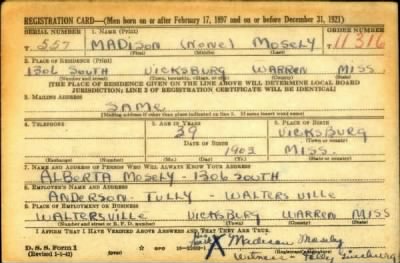 REGISTRATION CARD—(Men born on or after February 17, 1897 and on or before December 31, 1921)
SERIAL NUMBER 1. NAME (Print) ORDER NUMBER
T 557 MADISON (NONE) MOSELY 11316
(First) (Middle) (Last)
2. PLACE OF RESIDENCE (Print)
1306 SOUTH VICKSBURG WARREN MISS
(Number and street) (Town, township, village, or city) (County) (State)
[THE PLACE OF RESIDENCE GIVEN ON THE LINE ABOVE WILL DETERMINE LOCAL BOARD
JURISDICTION; LINE 2 OF REGISTRATION CERTIFICATE WILL BE IDENTICAL]
3. MAILING ADDRESS
SAME
[Mailing address if other than place indicated on line 2. If same insert word same]
4. TELEPHONE 5. AGE IN YEARS 6. PLACE OF BIRTH
39 VICKSBURG
DATE OF BIRTH (Town or county)
1903 MISS.
(Exchange) (Number) (Mo.) (Day) (Yr.) (State or country)
7. NAME AND ADDRESS OF PERSON WHO WILL ALWAYS KNOW YOUR ADDRESS
ALBERTA MOSELY - 1306 SOUTH
8. EMPLOYER'S NAME AND ADDRESS
ANDERSON - TULLY - WALTERSVILLE
9. PLACE OF EMPLOYMENT OR BUSINESS
WALTERSVILLE VICKSBURG WARREN MISS
(Number and street or R. F. D. number) (Town) (County) (State)
I AFFIRM THAT I HAVE VERIFIED ABOVE ANSWERS AND THAT THEY ARE TRUE.
D. S. S. Form 1 X Madison Mosely
(Revised 1-1-42) Witness -